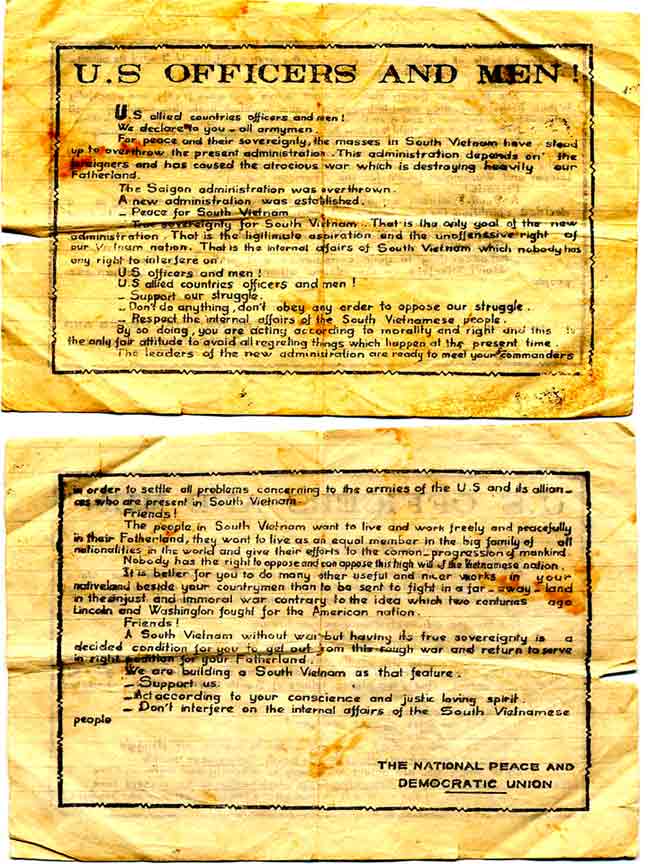 U.S OFFICERS AND MEN !
U.S allied countries officers and men !
We declare to you - all armymen.
For peace and their sovereignty, the masses in South Vietnam have stood
up to overthrow the present administration. This administration depends on the
foreigners and has caused the atrocious war which is destroying heavily our
Fatherland.
The Saigon administration was overthrown.
A new administration was established.
- Peace for South Vietnam
- True sovereignty for South Vietnam. That is the only goal of the new
administration. That is the ligitimate aspiration and the unoffensive right of
our Vietnam nation. That is the internal affairs of South Vietnam which nobody has
any right to interfere on.
U.S officers and men !
U.S allied countries officers and men !
- Support our struggle.
- Don't do anything, don't obey any order to oppose our struggle.
- Respect the internal affairs of the South Vietnamese people.
By so doing, you are acting according to morality and right and this is
the only fair attitude to avoid all regreting things which happen at the present time.
The leaders of the new administration are ready to meet your commanders
in order to settle all problems concerning to the armies of the U.S and its allian-
ces who are present in South Vietnam
Friends !
The people in South Vietnam want to live and work freely and peacefully
in their Fatherland, they want to live as an equal member in the big family of all
nationalities in the world and give their efforts to the comon-progression of mankind.
Nobody has the right to oppose and can oppose this high will of the Vietnamese nation.
It is better for you to do many other useful and nicer works in your
nativeland beside your countrymen than to be sent to fight in a far-away-land
in the unjust and immoral war contrary to the idea which two centuries ago
Lincoln and Washington fought for the American nation.
Friends !
A South Vietnam without war but having its true sovereignty is a
decided condition for you to get out from this rough war and return to serve
in right position for your Fatherland.
We are building a South Vietnam as that feature.
- Support us.
- Act according to your conscience and justic loving spirit.
- Don't interfere on the internal affairs of the South Vietnamese
people
THE NATIONAL PEACE AND
DEMOCRATIC UNION